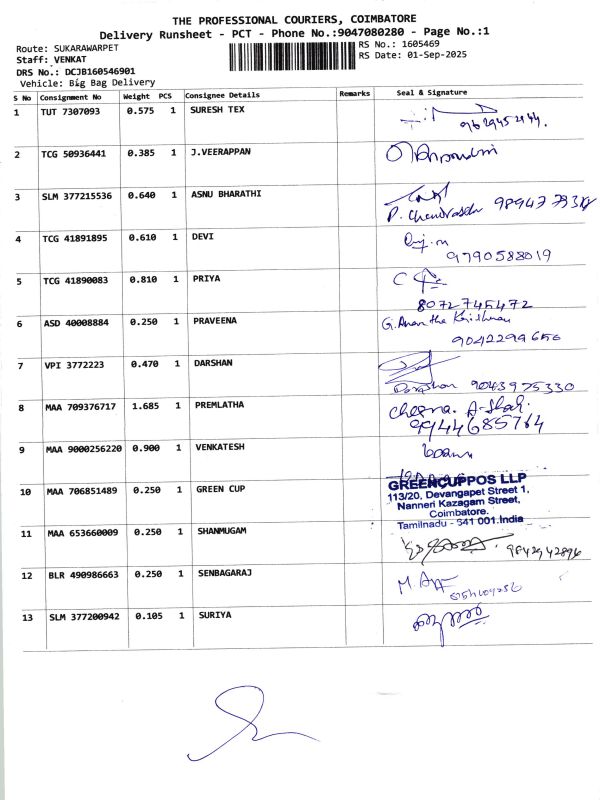 THE PROFESSIONAL COURIERS, COIMBATORE
Delivery Runsheet - PCT - Phone No.:9047080280 - Page No.:1
Route: SUKARAWARPET
RS No.: 1605469
Staff: VENKAT
RS Date: 01-Sep-2025
DRS No.: DCJB160546901
Vehicle: Big Bag Delivery
S No Consignment No Weight PCS Consignee Details Remarks Seal & Signature
1 TUT 7307093 0.575 1 SURESH TEX
2 TCG 50936441 0.385 1 J.VEERAPPAN
3 SLM 377215536 0.640 1 ASNU BHARATHI
P. Chandrasekar
4 TCG 41891895 0.610 1 DEVI
9790588019
5 TCG 41890083 0.810 1 PRIYA
8072745472
6 ASD 40008884 0.250 1 PRAVEENA G. Anantha Krishnan
9042299656
7 VPI 3772223 0.470 1 DARSHAN
Darshan 9043975330
8 MAA 709376717 1.685 1 PREMLATHA
9944685764
9 MAA 9000256220 0.900 1 VENKATESH
10 MAA 706851489 0.250 1 GREEN CUP
GREENCUPPOS LLP
113/20, Devangapet Street 1,
Nanneri Kazagam Street,
Coimbatore.
Tamilnadu - 641 001.India
11 MAA 653660009 0.250 1 SHANMUGAM
9842942896
12 BLR 490986663 0.250 1 SENBAGARAJ
13 SLM 377200942 0.105 1 SURIYA